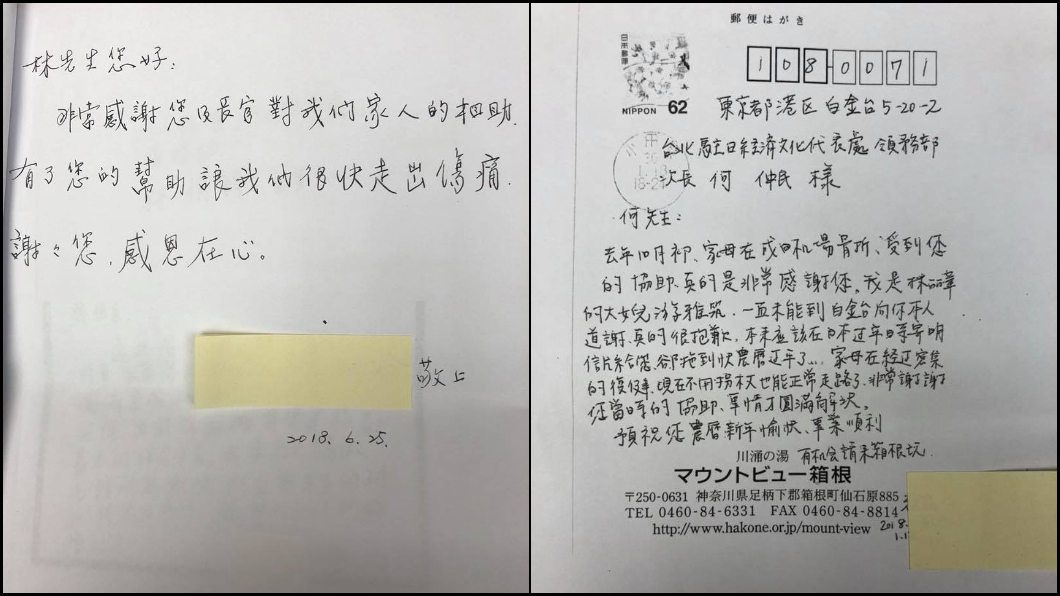 林先生您好：
非常感謝您及長官對我們家人的相助.
有了您的幫助讓我們很快走出傷痛.
謝々您,感恩在心。
敬上
2018. 6. 25.
郵便はがき
日本郵便
NIPPON 62
108-0071
東京都港区白金台5-20-2
台北駐日経済文化代表處 領務部
次長 何 仲民 様
何先生：
去年10月初、家母在成田机場骨折、受到您
的協助.真的是非常感謝您.我是林
的大女兒游雅筑.一直未能到白金台向你本人
道謝.真的很抱歉.本来應該在日本过年時寄明
信片給您.卻拖到快農曆过年了...家母在經过密集
的復健.現在不用拐杖也能正常走路了.非常謝謝
您當時的協助、事情才圓滿解決。
預祝您農曆新年愉快、事業順利
有机会請来箱根玩.
川涌の湯
マウントビュー箱根
〒250-0631 神奈川県足柄下郡箱根町仙石原885
TEL 0460-84-6331 FAX 0460-84-8814
http://www.hakone.or.jp/mount-view
2018.